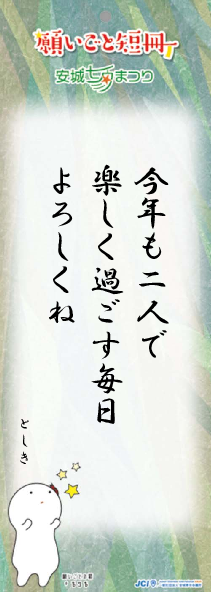 願いごと短冊
安城七夕まつり
今年も二人で
楽しく過ごす毎日
よろしくね
としき
JCI